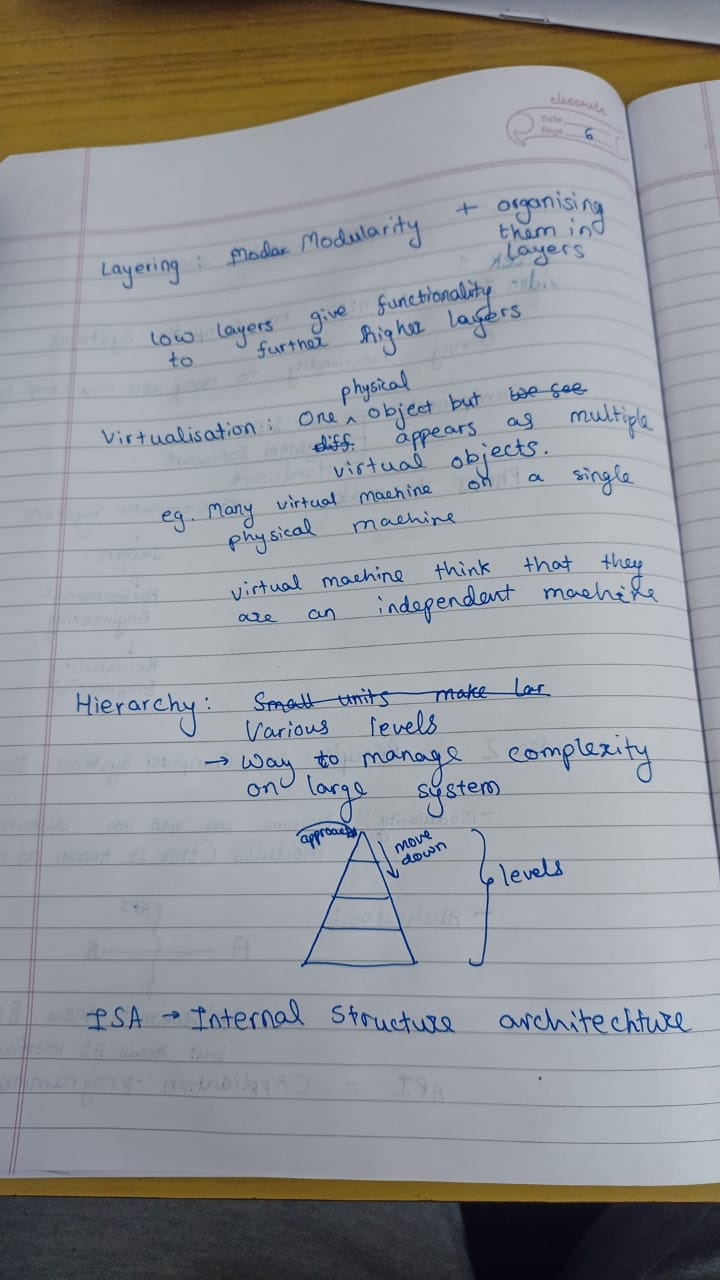 classmate
Date
Page 6
Layering : Modar Modularity + organising
them in
layers
low layers give functionality
to further higher layers
physical
Virtualisation : One ^ object but we see
diff. appears as multiple
virtual objects.
eg. Many virtual machine on a single
physical machine
virtual machine think that they
are an independent machine
Hierarchy : Small units make lar
Various levels
→ Way to manage complexity
on large system
approach
move
down
levels
ISA → Internal structure architechture